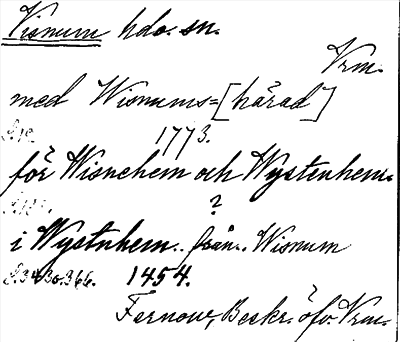 Visnum hdo. sn.
Vrm.
med Wisnums=[härad]
1773.
för Wisnehem och Wystenhem.
?
i Wystnhem.. från. Wisnum
S. 343 o. 366. 1454.
Fernow, Beskr. öfv. Vrm.